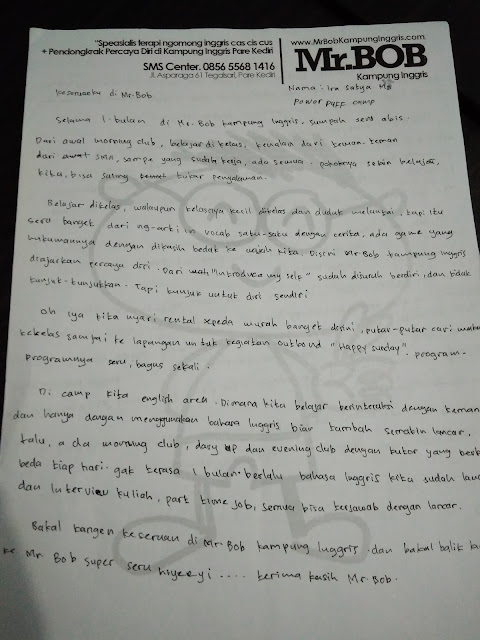 "Speasialis terapi ngomong inggris cas cis cus
+ Pendongkrak Percaya Diri di Kampung Inggris Pare Kediri
SMS Center. 0856 5568 1416
Jl. Asparaga 61 Tegalsari, Pare Kediri
www.MrBobKampungInggris.com
Mr.BOB
Kampung Inggris
Keseruanku di Mr.Bob.
Nama : Ira Satya
Power Puff camp
Selama 1 bulan di Mr. Bob kampung Inggris, sumpah seru abis.
Dari awal morning club, belajar di kelas, kenalan dari teman-teman
dari awat SMA, sampe yang sudah kerja, ada semua. pokoknya selain belajar,
kita bisa saling tukar pengalaman.
Belajar dikelas, walaupun kelasnya kecil dikelas dan duduk melantai, tapi itu
seru banget dari ng-arti in vocab satu-satu dengan cerita, ada game yang
hukumannya dengan dikasih bedak ke wajah kita. Disini Mr Bob kampung inggris
diajarkan percaya diri. Dari mulai "introduce my self" sudah disuruh berdiri, dan tidak
tunjuk-tunjukkan. Tapi tunjuk untuk diri sendiri
Oh iya kita nyari rental sepeda murah banget disini, putar-putar cari
kekelas sampai ke lapangan untuk kegiatan outbond "Happy sunday". program-
programnya seru, bagus sekali.
Di camp kita english area. Dimana kita belajar berinteraksi dengan teman
dan hanya dengan menggunakan bahasa Inggris biar tambah semakin lancar.
Lalu, ada morning club, dan evening club dengan tutor yang
beda tiap hari. gak terasa 1 bulan berlalu bahasa Inggris kita sudah
dan Interview kuliah, part time job, semua bisa terjawab dengan lancar.
Bakal kangen keseruan di Mr. Bob kampung Inggris. dan bakal balik
ke Mr. Bob super seru hiyeeyi .... terima kasih Mr. Bob.